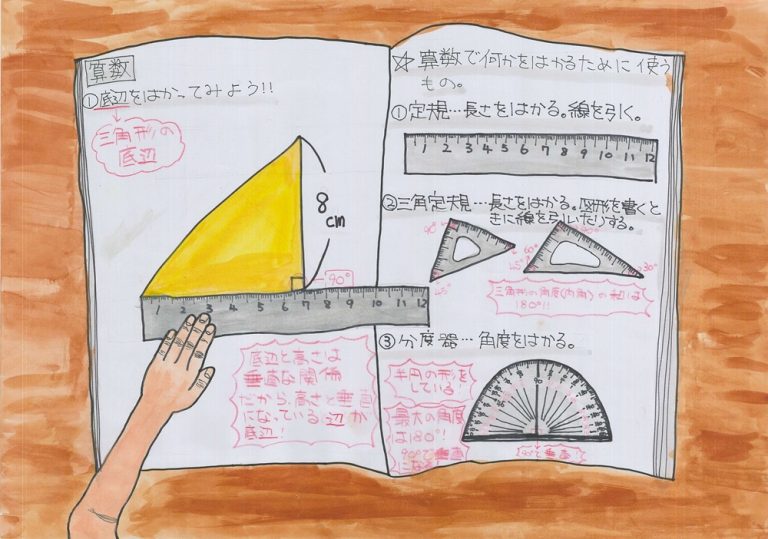 算数
①底辺をはかってみよう!!
三角形の
底辺
8
cm
90°
1 2 3 4 5 6 7 8 9 10 11 12
底辺と高さは
垂直な関係
だから、高さと垂直
になっている辺が
底辺!
☆算数で何かをはかるために使う
もの。
①定規…長さをはかる。線を引く。
1 2 3 4 5 6 7 8 9 10 11 12
②三角定規…長さをはかる。図形を書くと
きに線を引いたりする。
90°
45°
45°
90°
60°
30°
三角形の角度(内角)の和は
180°!!
③分度器…角度をはかる。
半円の形を
している!
最大の角度
は180°!
90°で垂直
になる!
90
90°で垂直!